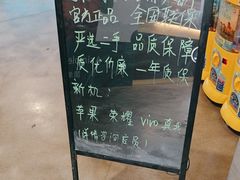 官方正品 全国联保
严选二手 品质保障
质优价廉 一年质保
新机：
苹果 荣耀 vivo 真我
（详情咨询店员）